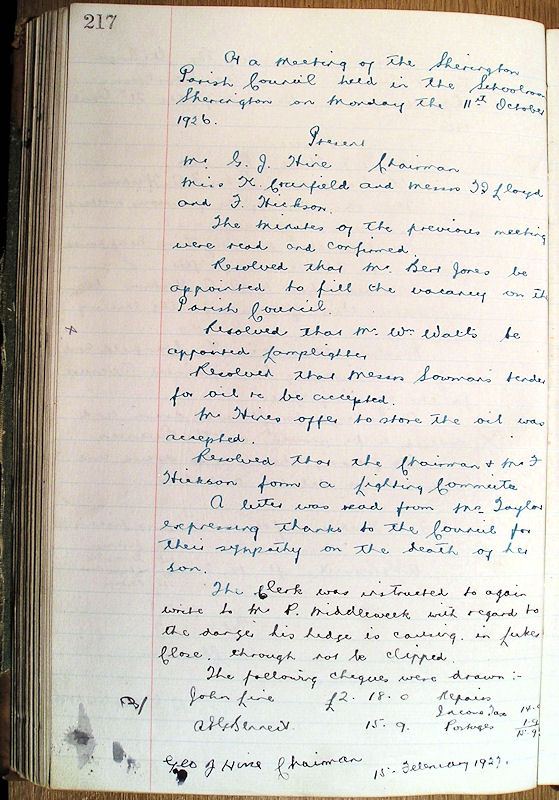 217
At a meeting of the Sherington
Parish Council held in the Schoolroom
Sherington on Monday the 11th October
1926.
Present
Mr G. J. Hine Chairman
Miss K. Cranfield and Messrs Lloyd
and F. Hickson.
The minutes of the previous meeting
were read and confirmed.
Resolved that Mr. Bert Jones be
appointed to fill the vacancy on the
Parish Council.
Resolved that Mr. Wm Watts be
x
appointed Lamplighter
Resolved that Messrs Sowman's tender
for oil be accepted.
Mr Hines offer to store the oil was
accepted.
Resolved that the Chairman + Mr F
Hickson form a Lighting Committe
A letter was read from Mrs Taylor
expressing thanks to the Council for
their sympathy on the death of her
son.
The Clerk was instructed to again
write to Mr P. Middleweek with regard to
the danger his hedge is causing in
Close. through not be clipped.
The following cheques were drawn :-
John Line £2. 18. 0 Repairs
Income Tax 14.0
Bennett 15. 9. Postages 1.9
15.9
Geo J Hine Chairman 15. February 1927.